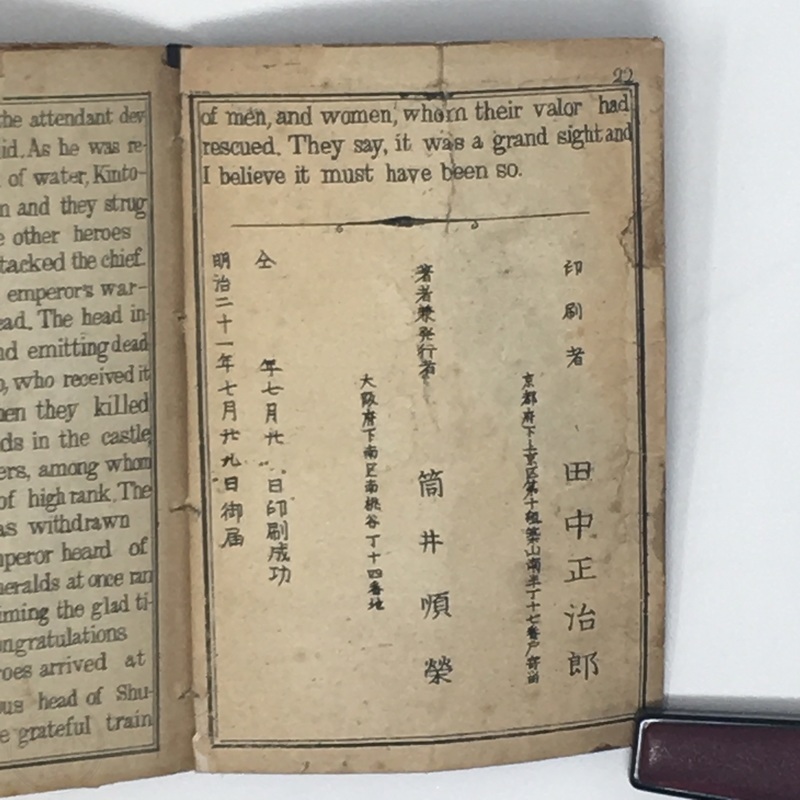 the attendant dev
id. As he was re-
of water, Kinto-
n and they strug
e other heroes
tacked the chief.
emperor's war-
ead. The head in-
nd emitting dead
o, who received it
hen they killed
ds in the castle,
ers, among whom
of high rank. The
as withdrawn
mperor heard of
heralds at once ran
iming the glad ti-
ongratulations
roes arrived at
ous head of Shu-
e grateful train
22
of men, and women, whom their valor had
rescued. They say, it was a grand sight and
I believe it must have been so.
明治二十一年七月廿九日御届
仝 年七月廿 日印刷成功
大阪府下南区南桃谷丁十四番地
著者兼発行者 筒井順榮
京都府下上京区第十組
印刷者 田中正治郎